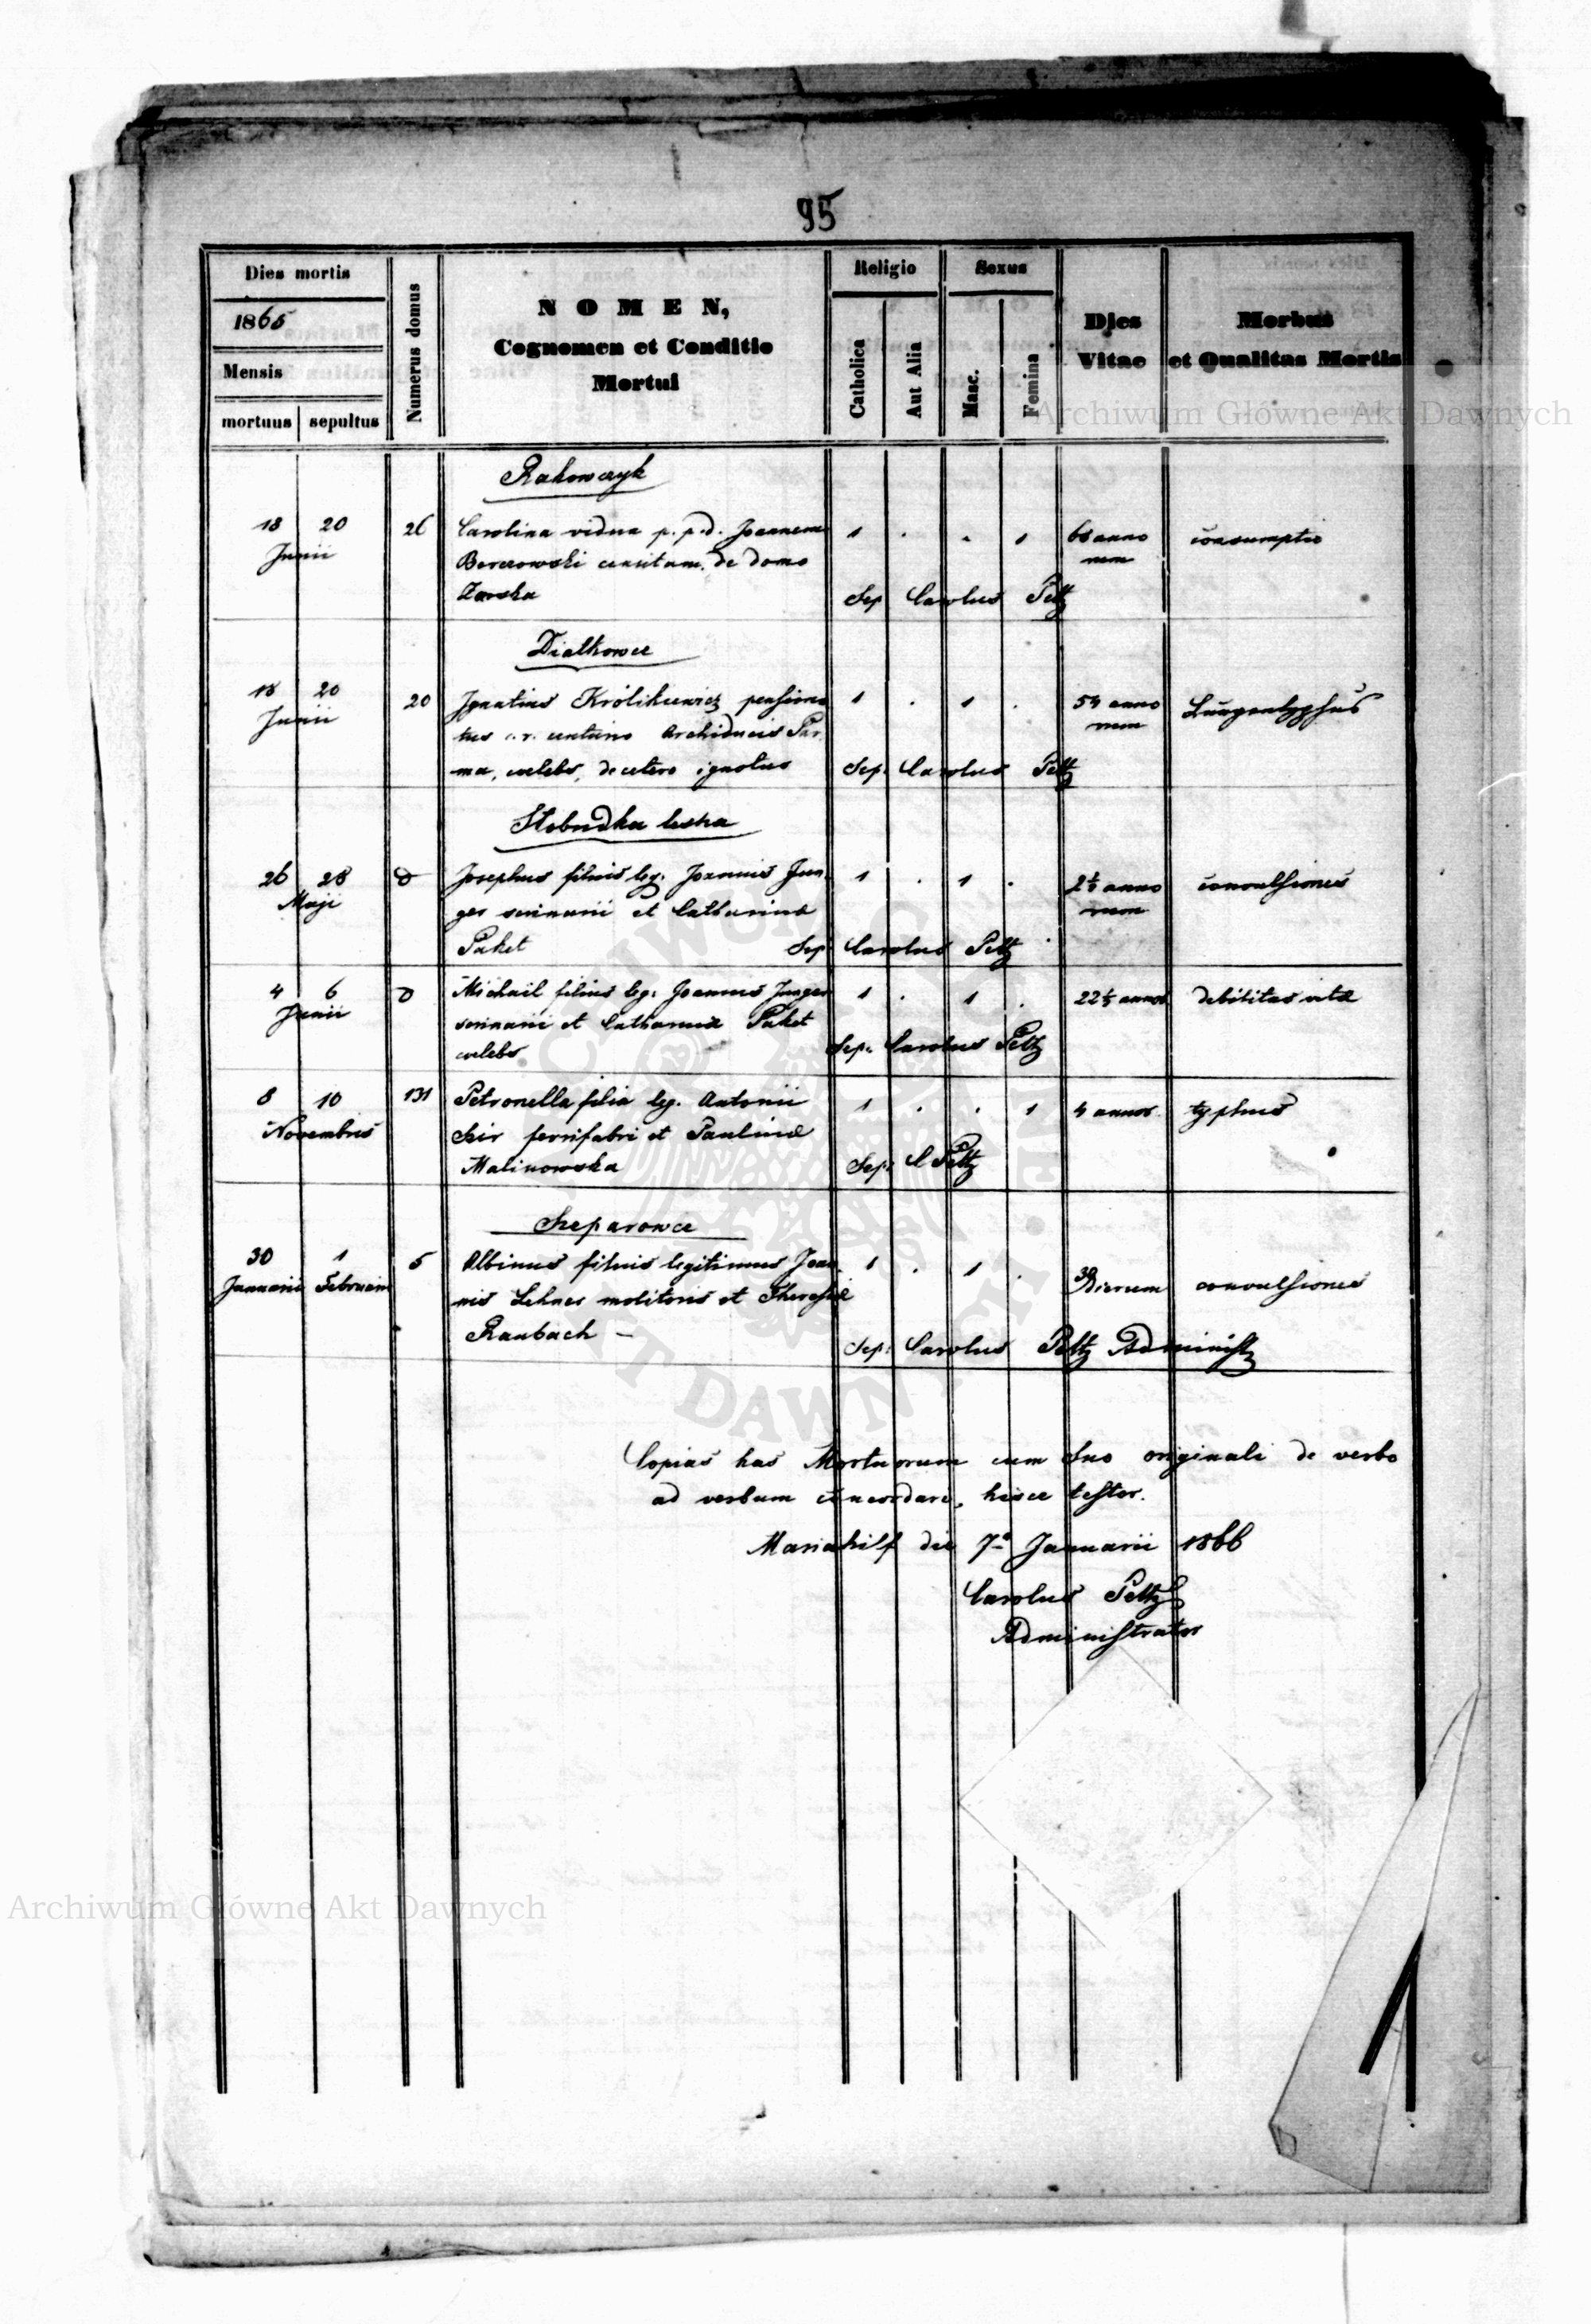 95
Dies mortis
1865
Mensis
mortuus sepultus
Numerus domus
NOMEN,
Cognomen et Conditio
Mortui
Religio
Catholica
Aut Alia
Sexus
Masc.
Femina
Dies
Vitae
Morbus
et Qualitas Mortis
Archiwum Główne Akt Dawnych
Rakowczyk
18 20 26 Carolina vidua p. p. d. Joannem 1 . . 1 68 anno consumptio
Junii Berezowski de domo rum
Zarska Sep Carolus Peltz
Diatkowce
18 20 20 Ignatius Królikiewicz pensiona 1 . 1 . 54 anno Lungentyphus
Junii tus c. r. centurio Archiducis Par rum
ma, celebs, de cetero ignotus Sep. Carolus Peltz
Slobudka lesna
26 28 Josephus filius leg. Joannis Jun 1 . 1 . 2½ anno convulsiones
Maji ger et Catharinae rum
Paket Sep Carolus Peltz
4 6 Michail filius leg. Joannis Junger 1 . 1 . 22½ annor debilitas vitae
Junii et Catharinae Paket
celebs Sep. Carolus Peltz
8 10 131 Petronella filia leg. Antonii 1 . . 1 4 annor typhus
Novembris ferrifabri et Paulinae
Malinowska Sep. C Peltz
Szeparowce
30 1 5 Albinus filius legitimus Joan 1 . 1 . 30 dierum convulsiones
Januarii Februarii nis Lehner molitoris et Theresiae
Raubach – Sep. Carolus Peltz Administ
Copias has Mortuorum cum suo originali de verbo
ad verbum concordare, hisce testor.
Mariahilf die 7a Januarii 1866
Carolus Peltz
Administrator
Archiwum Główne Akt Dawnych
ARCHIWUM AKT DAWNYCH